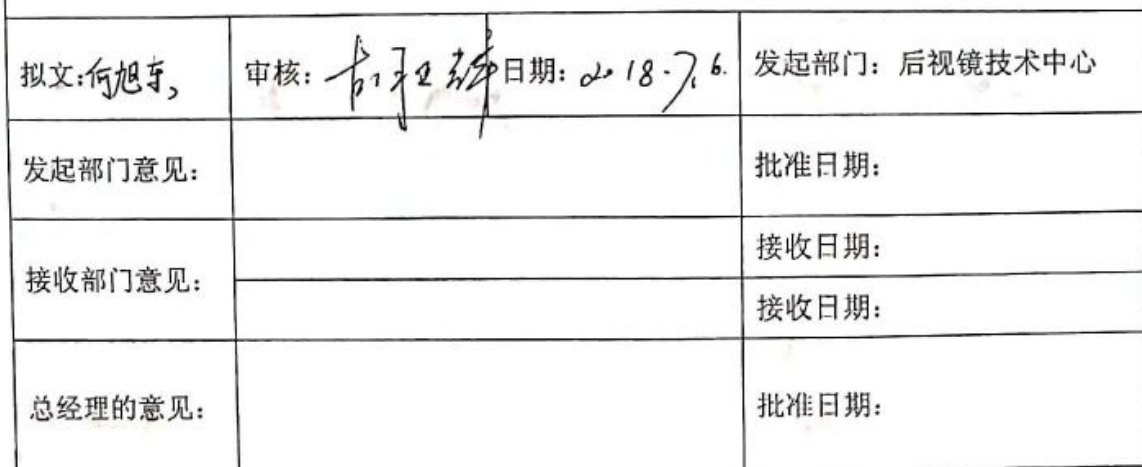 拟文:何旭东,
审核:
日期: 2018.7.6.
发起部门: 后视镜技术中心
发起部门意见:
批准日期:
接收部门意见:
接收日期:
接收日期:
总经理的意见:
批准日期: